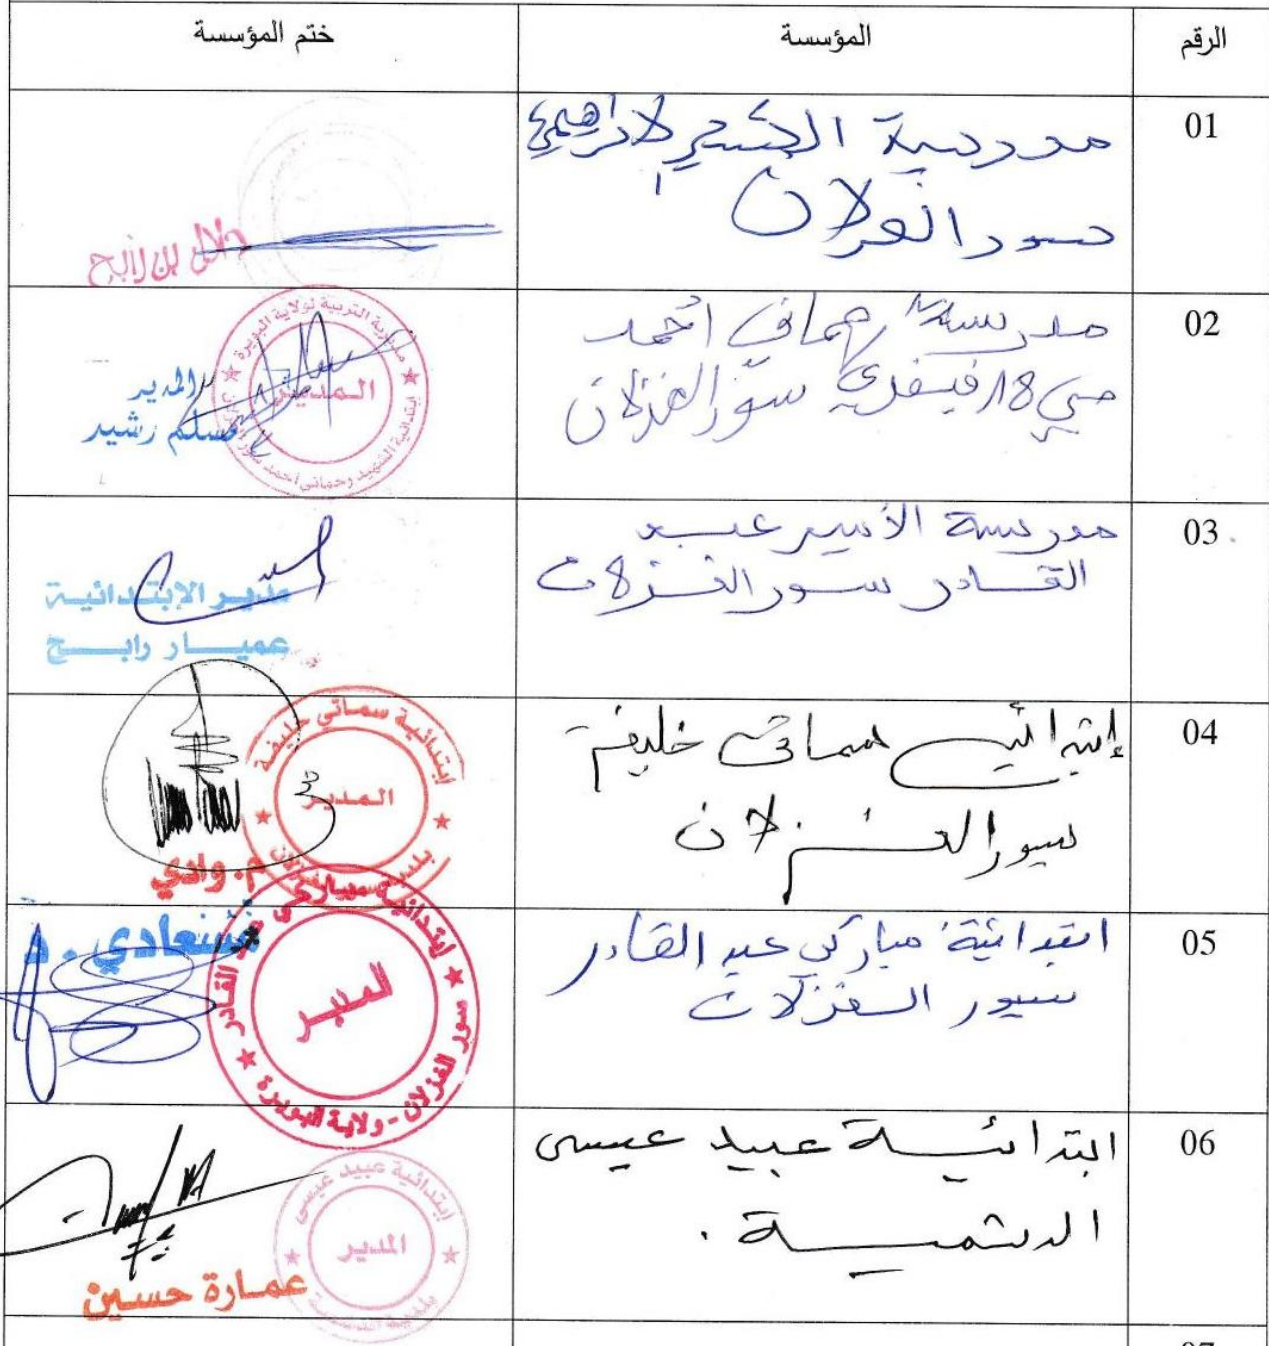 الرقم المؤسسة ختم المؤسسة
01 مدرسة البشير الإبراهيمي
سور الغزلان
دلال بن رابح
02 مدرسة رحماني أحمد
حي 18 فيفري سور الغزلان
مديرية التربية لولاية البويرة
ابتدائية الشهيد رحماني أحمد سور الغزلان
المدير
المدير
مسلم رشيد
03 مدرسة الأمير عبد
القادر سور الغزلان
مدير الإبتدائية
عميار رابح
04 إبتدائية سماتي خليفة
سور الغزلان
ابتدائية سماتي خليفة
المدير
بلدية سور الغزلان
م. وادي
05 ابتدائية مباركي عبد القادر
سور الغزلان
ابتدائية مباركي عبد القادر
المدير
سور الغزلان - ولاية البويرة
06 ابتدائية عبيد عيسى
الدشمية.
إبتدائية عبيد عيسى
المدير
بلدية الدشمية
عمارة حسين